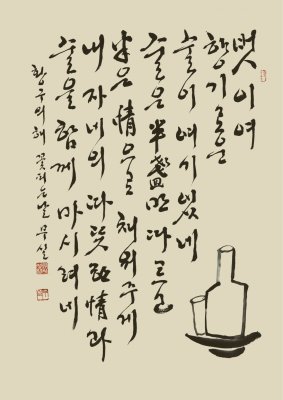 벗이여
향기로운
술이 여기 있네
술은 半盞만 따르고
半은 情으로 채워주게
내 자네의 따뜻한 情과
술을 함께 마시려네
황구의 해 꽃피는 날